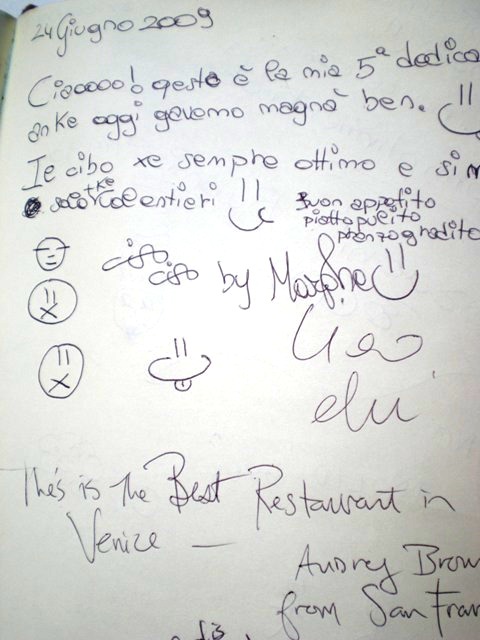 24 Giugno 2009
Ciaoooo! qeste è la mia 5ª dedica
anke oggi gavemo magnà ben.
Ie cibo xe sempre ottimo e
Buon appetito
piatto pulito
pranzo gradito
ciao
ciao
by
Ciao
The's is the Best Restaurant in
Venice —
Audrey Brow
from San Fran